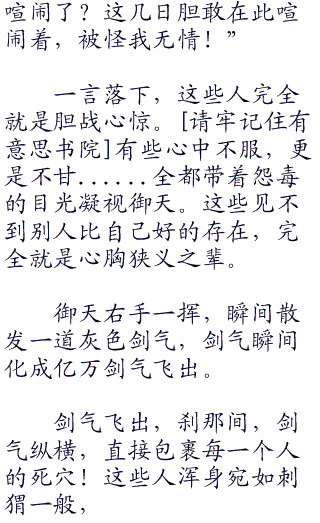 喧闹了？这几日胆敢在此喧
闹着，被怪我无情！”
一言落下，这些人完全
就是胆战心惊。[请牢记住有
意思书院]有些心中不服，更
是不甘......全都带着怨毒
的目光凝视御天。这些见不
到别人比自己好的存在，完
全就是心胸狭义之辈。
御天右手一挥，瞬间散
发一道灰色剑气，剑气瞬间
化成亿万剑气飞出。
剑气飞出，刹那间，剑
气纵横，直接包裹每一个人
的死穴！这些人浑身宛如刺
猬一般，